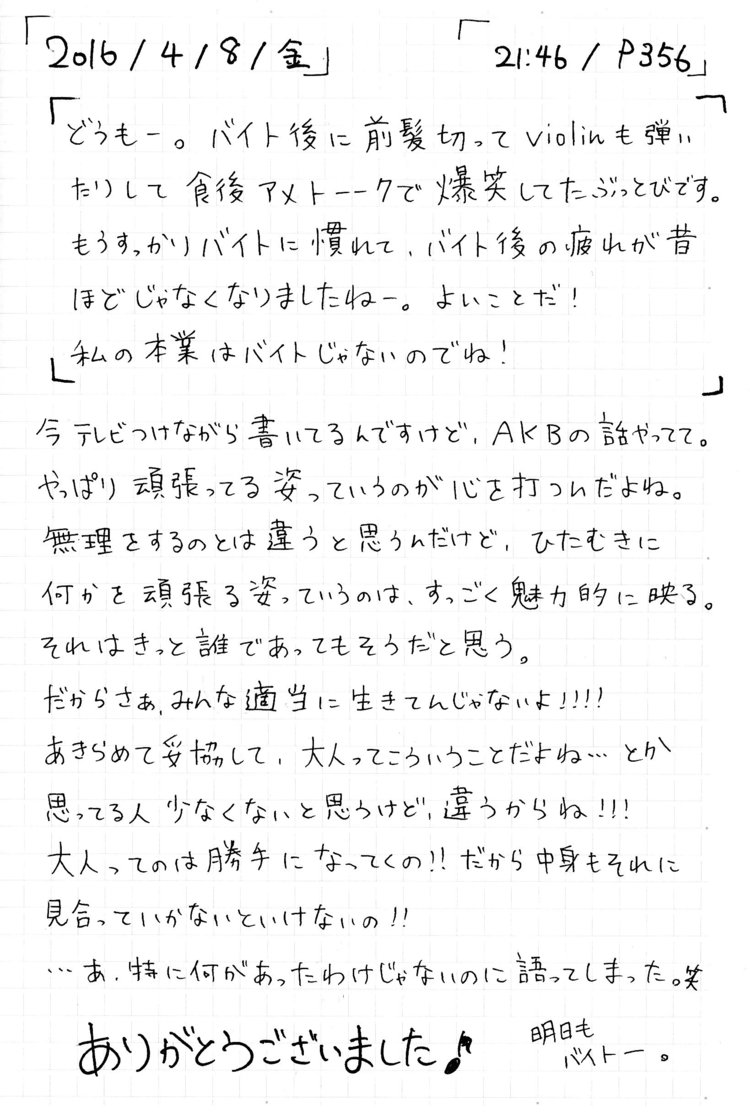 「2016/4/8/金」 「21:46/P356」
「どうもー。バイト後に前髪切ってviolinも弾い
たりして食後アメトーークで爆笑してたぶっとびです。
もうすっかりバイトに慣れて、バイト後の疲れが昔
ほどじゃなくなりましたねー。よいことだ！
私の本業はバイトじゃないのでね！」
今テレビつけながら書いてるんですけど、AKBの話やってて。
やっぱり頑張ってる姿っていうのが心を打つんだよね。
無理をするのとは違うと思うんだけど、ひたむきに
何かを頑張る姿っていうのは、すっごく魅力的に映る。
それはきっと誰であってもそうだと思う。
だからさぁ、みんな適当に生きてんじゃないよ！！！！
あきらめて妥協して、大人ってこういうことだよね…とか
思ってる人少なくないと思うけど、違うからね！！！
大人ってのは勝手になってくの！！だから中身もそれに
見合っていかないといけないの！！
…あ、特に何があったわけじゃないのに語ってしまった。笑
ありがとうございました♪
明日も
バイトー。